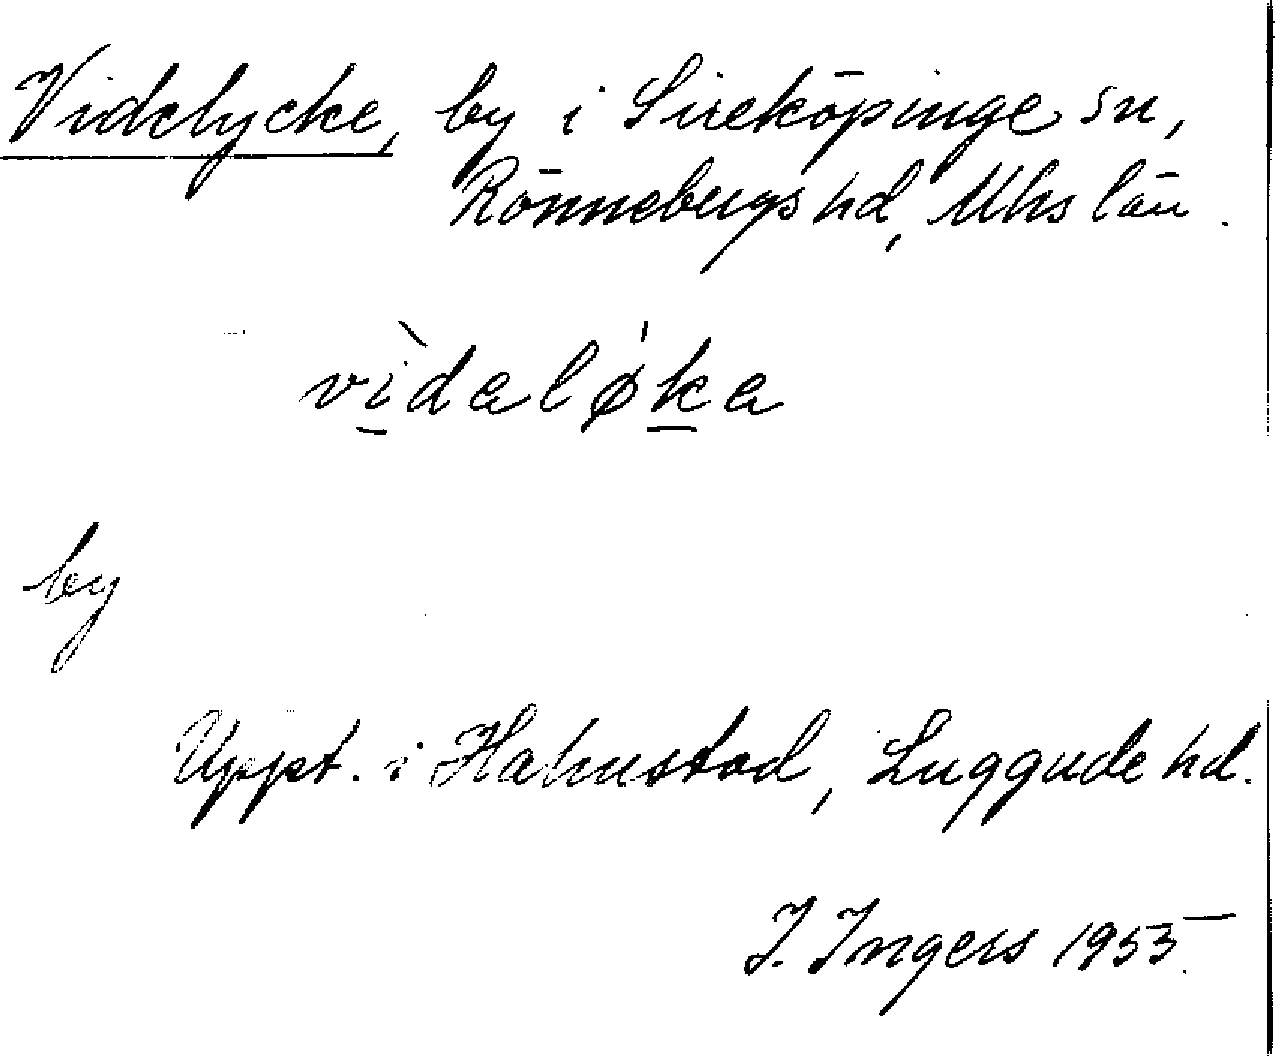 Videlycke, by i Sireköpinge sn,
Rönnebergs hd, Mhs län.
vìdaløka
by
Uppt. i Halmstad, Luggude hd.
I. Ingers 1955.